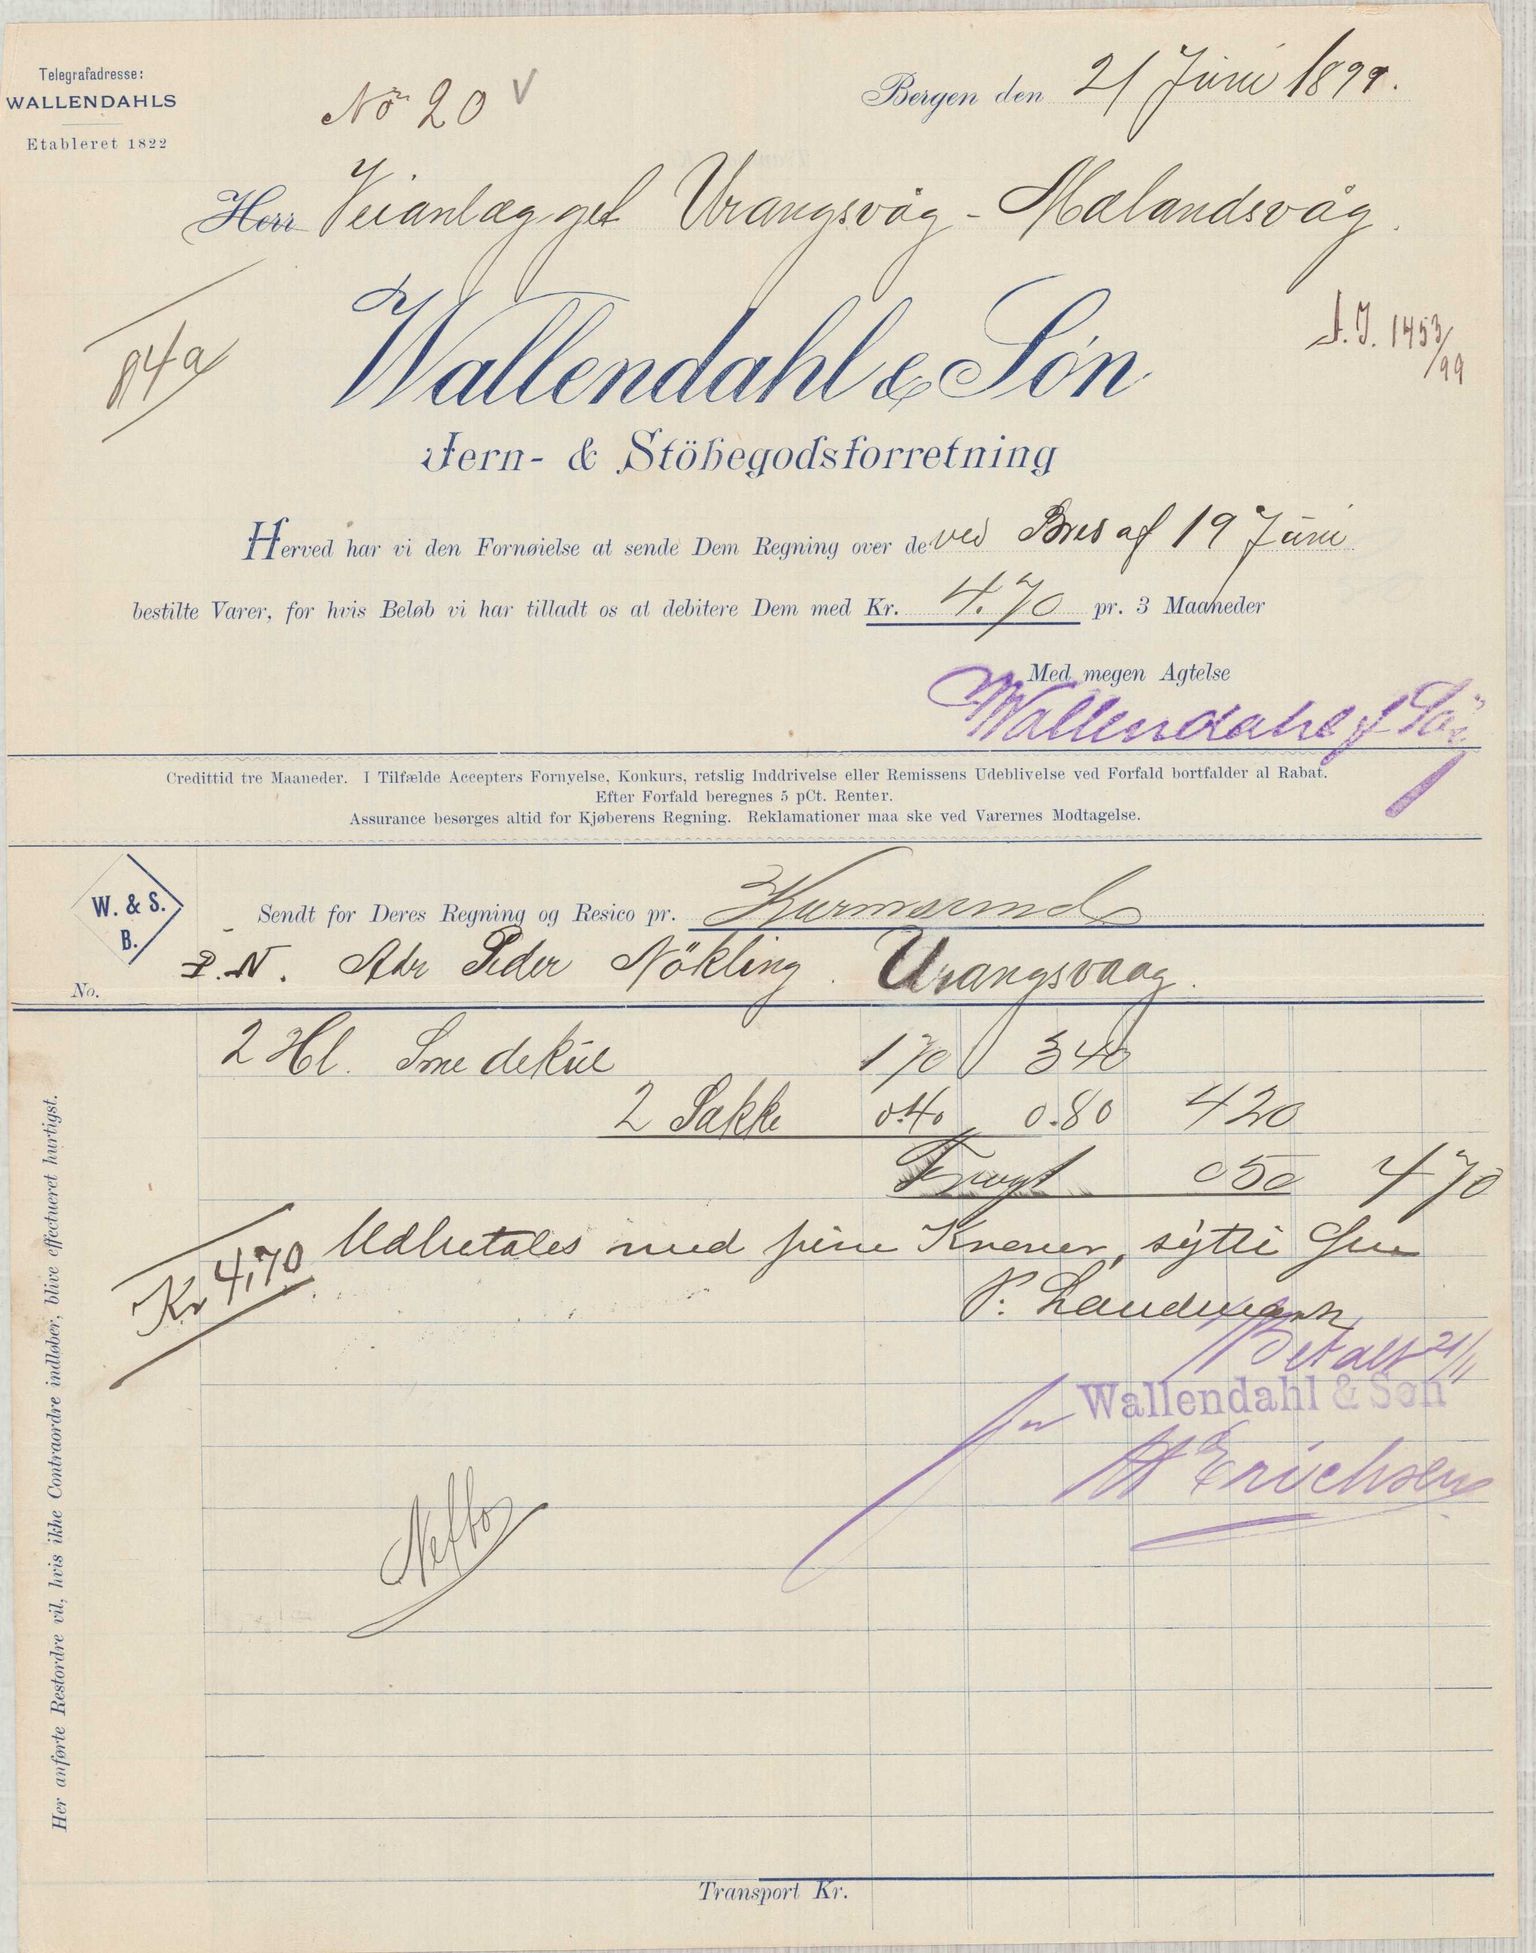 Telegrafadresse:
WALLENDAHLS
Etableret 1822
No 20 V
Bergen den 21 Juni 1899.
Herr Veianlægget Urangsvåg - Mælandsvåg.
84a
J. J. 1453/99
Wallendahl & Søn
Jern- & Stöbegodsforretning
Herved har vi den Fornøielse at sende Dem Regning over de ved Brev af 19 Juni
bestilte Varer, for hvis Beløb vi har tilladt os at debitere Dem med Kr. 4.70 pr. 3 Maaneder
Med megen Agtelse
Wallendahl & Søn
Credittid tre Maaneder. I Tilfælde Accepters Fornyelse, Konkurs, retslig Inddrivelse eller Remissens Udeblivelse ved Forfald bortfalder al Rabat.
Efter Forfald beregnes 5 pCt. Renter.
Assurance besørges altid for Kjøberens Regning. Reklamationer maa ske ved Varernes Modtagelse.
W. & S.
B.
Sendt for Deres Regning og Resico pr. Karmsund
P. N. Adr Peder Nökling. Urangsvaag.
No.
2 Hl. Smedekul 1 70 3 40
2 Sække 0.40 0.80 4 20
Fragt 0 50 4 70
Udbetales med fire Kroner, sytti Øre
Kr 4,70
P. Landmark
Betalt 21/11
for Wallendahl & Søn
Erichsen
Her anførte Restordre vil, hvis ikke Contraordre indløber, blive effectueret hurtigst.
Transport Kr.